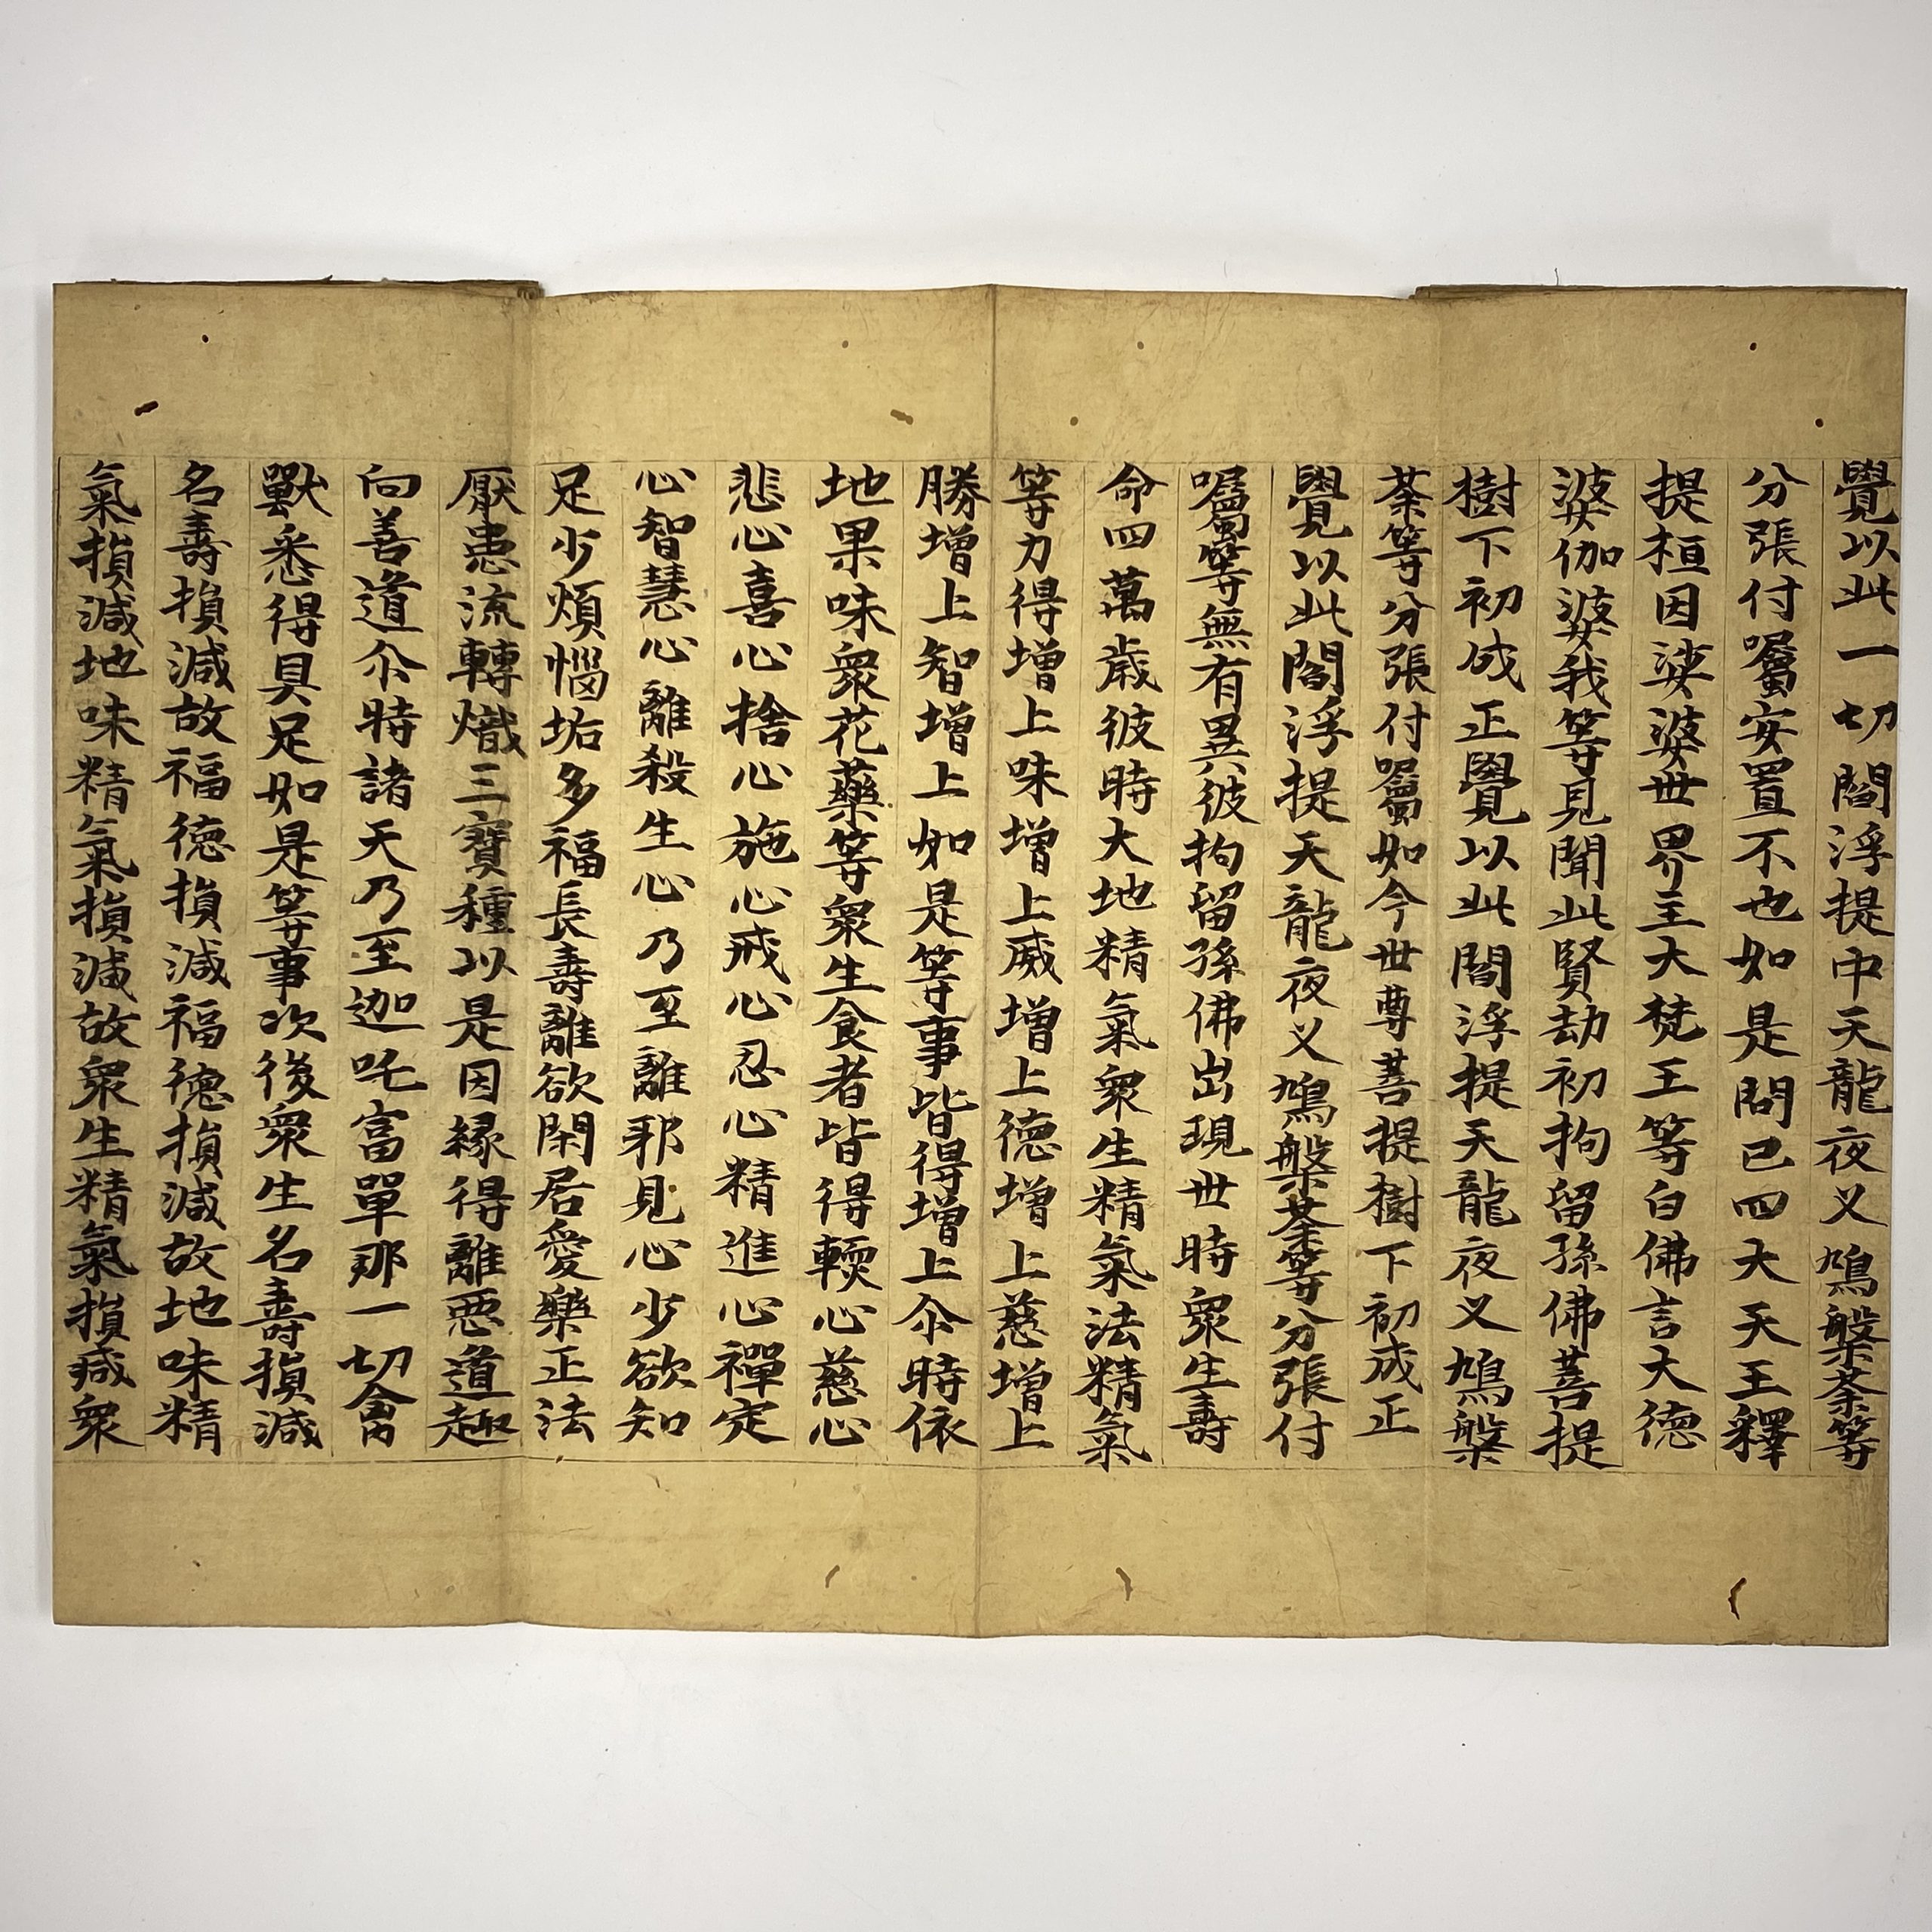 覺以此一切閻浮提中天龍夜叉鳩槃荼等
分張付囑安置不也如是問已四大天王釋
提桓因娑婆世界主大梵王等白佛言大德
婆伽婆我等見聞此賢劫初拘留孫佛菩提
樹下初成正覺以此閻浮提天龍夜叉鳩槃
荼等分張付囑如今世尊菩提樹下初成正
覺以此閻浮提天龍夜叉鳩槃荼等分張付
囑等無有異彼拘留孫佛出現世時衆生壽
命四萬歲彼時大地精氣衆生精氣法精氣
等力得增上味增上威增上德增上慈增上
勝增上智增上如是等事皆得增上尒時依
地果味衆花藥等衆生食者皆得軟心慈心
悲心喜心捨心施心戒心忍心精進心禪定
心智慧心離殺生心乃至離邪見心少欲知
足少煩惱垢多福長壽離欲閑居愛樂正法
厭患流轉熾三寶種以是因緣得離惡道趣
向善道尒時諸天乃至迦吒富單那一切禽
獸悉得具足如是等事次後衆生名壽損減
名壽損減故福德損減福德損減故地味精
氣損減地味精氣損減故衆生精氣損減衆